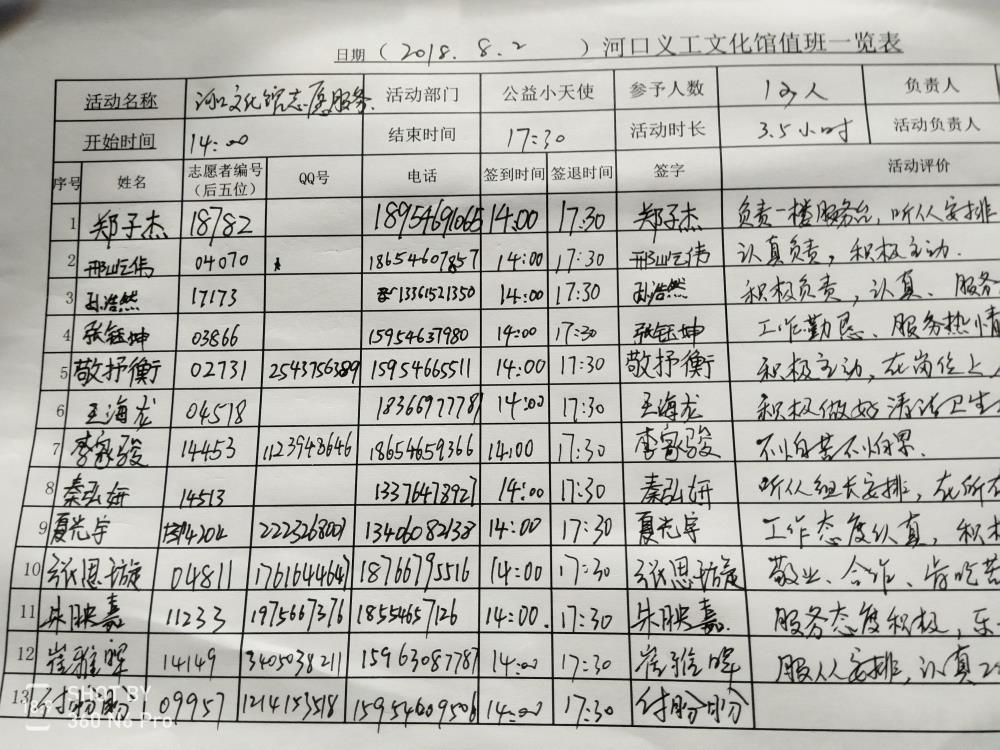 日期（2018.8.2）河口义工文化馆值班一览表
活动名称 河口文化馆志愿服务. 活动部门 公益小天使 参予人数 13人 负责人
开始时间 14:00 结束时间 17:30 活动时长 3.5小时 活动负责人
序号 姓名 志愿者编号（后五位） QQ号 电话 签到时间 签退时间 签字 活动评价
1 郑子杰 18782 18954691065 14:00 17:30 郑子杰 负责一楼服务台，听从安排
2 邢屹伟 04070 18654607857 14:00 17:30 邢屹伟 认真负责，积极主动.
3 孙浩然 17173 13361521350 14:00 17:30 孙浩然 积极负责，认真、服务
4 张钰坤 03866 15954637980 14:00 17:30 张钰坤 工作勤恳、服务热情
5 敬抒衡 02731 2543756389 15954665511 14:00 17:30 敬抒衡 积极主动，在岗位上
6 王海龙 04518 18366977787 14:00 17:30 王海龙 积极做好清洁卫生
7 李家骏 14453 1123943646 18654659366 14:00 17:30 李家骏 不怕苦不怕累.
8 秦弘妍 14513 13376478927 14:00 17:30 秦弘妍 听从组长安排，在所在
9 夏光宇 14204 2223268003 13406082138 14:00 17:30 夏光宇 工作态度认真，积极
10 张恩旋 04811 1761644647 18766795516 14:00 17:30 张恩旋 敬业、合作、肯吃苦
11 朱映嘉 11233 1975667376 18554657126 14:00. 17:30 朱映嘉. 服务态度积极，乐
12 崔雅晖 14149 3405038211 15963087787 14:00 17:30 崔雅晖 服从安排，认真
13 付盼盼 09957 1214153518 15954609506 14:00 17:30 付盼盼
SHOT BY
360 N6 Pro